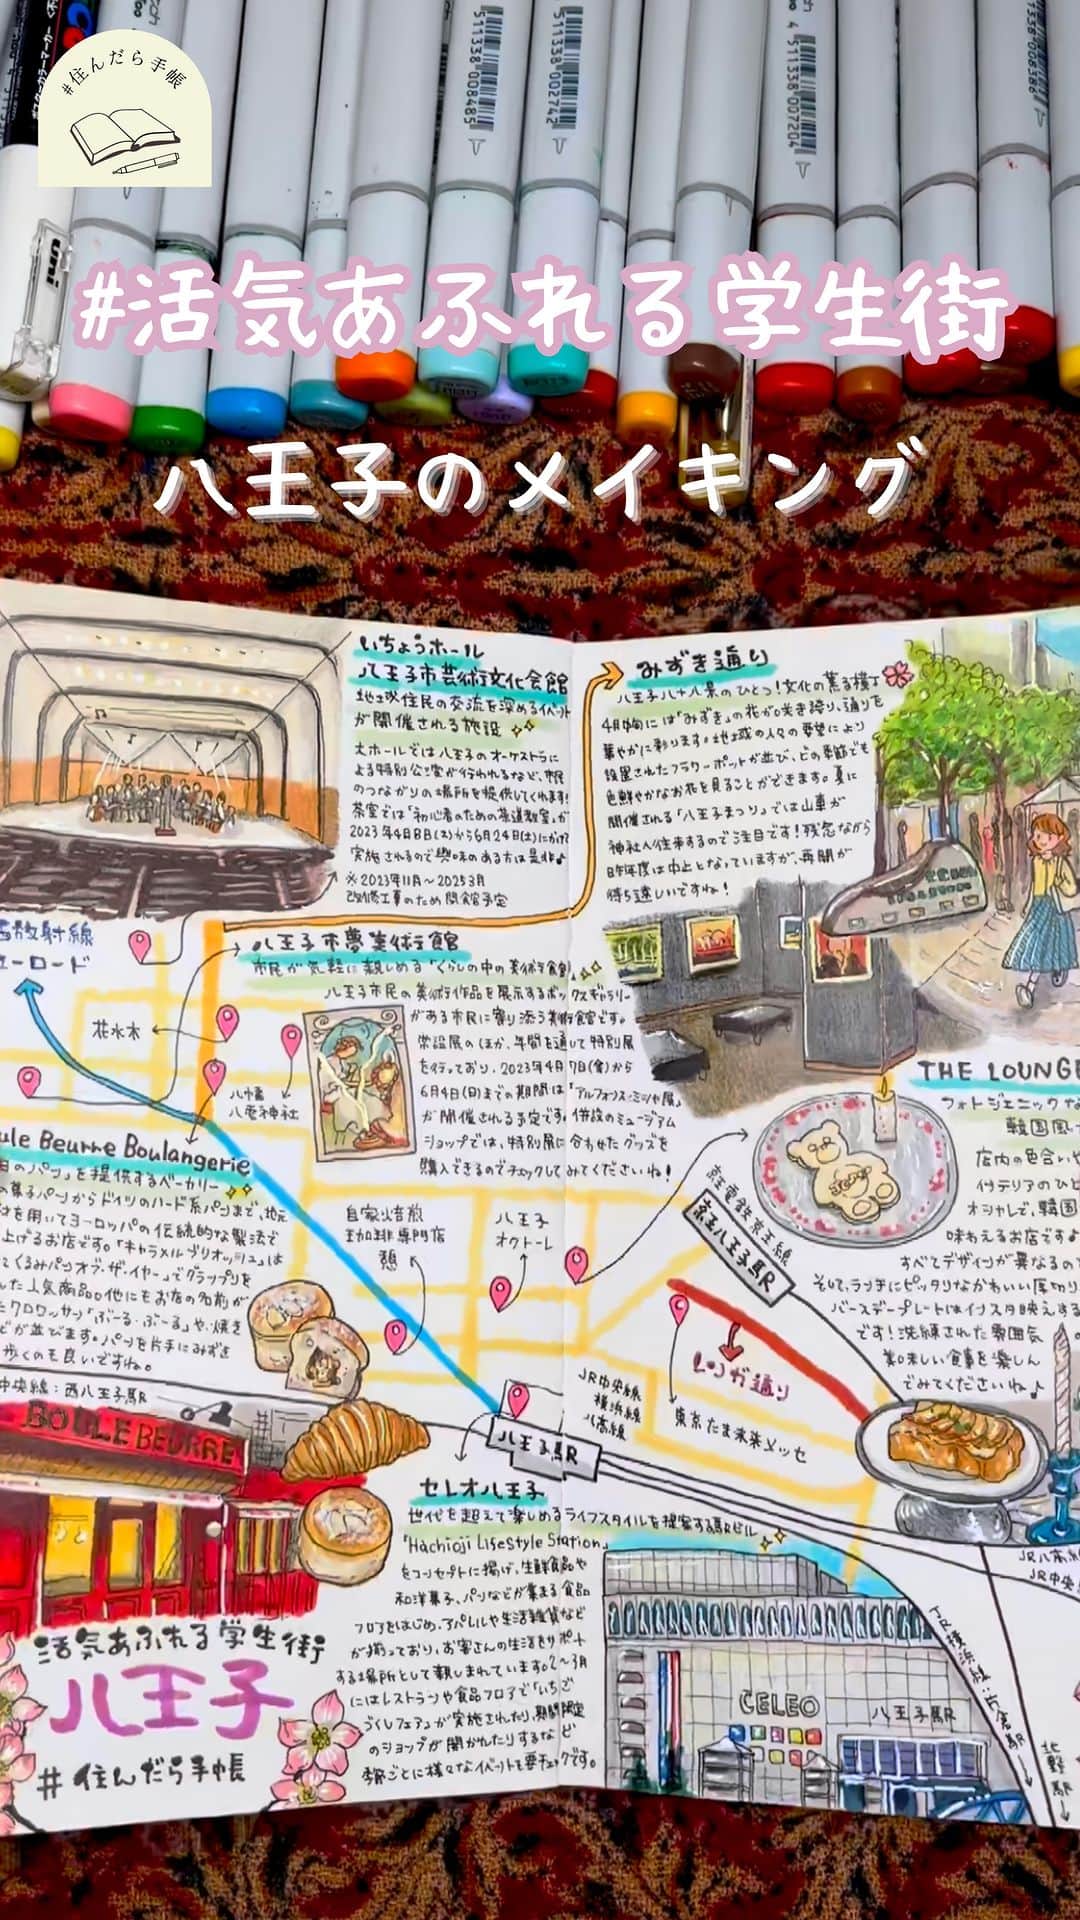 #住んだら手帳
511338 008485
511338 002742
4 511338 007204
uni
#活気あふれる学生街
八王子のメイキング
いちょうホール
八王子市芸術文化会館
地域住民の交流を深めるイベント
が開催される施設
大ホールでは八王子のオーケストラに
よる特別公演が行われるなど、市民
のつながりの場所を提供してくれます!
茶室では「初心者のための茶道教室」が
2023年4月8日(木)から6月24日(土)にかけて
実施されるので興味のある方は是非♪
※2023年11月~2025 3月
改修工事のため閉館予定
みずき通り
八王子八十八景のひとつ!文化の薫る横丁
4月中旬には「みずき」の花が咲き誇り、通りを
華やかに彩ります。地域の人々の要望により
設置されたフラワーポットが並び、どの季節でも
色鮮やかなお花を見ることができます。夏に
開催される「八王子まつり」では山車が
神社へ往来するので注目です!残念ながら
昨年度は中止となっていますが、再開が
待ち遠しいですね!
放射線
ーロード
八王子市夢美術館
市民が気軽に親しめる「くらしの中の美術館」
八王子市民の美術作品を展示するボックスギャラリー
がある市民に寄り添う美術館です。
常設展のほか、年間を通して特別展
を行っており、2023年4月7日(金)から
6月4日(日)までの期間は「アルフォンス・ミュシャ展」
が開催される予定です。併設のミュージアム
ショップでは、特別展に合わせたグッズを
購入できるのでチェックしてみてくださいね!
花水木
八幡
八雲神社
THE LOUNGE
フォトジェニックな
韓国風
店内の色合いや
インテリアのひと
オシャレで、韓国
味わえるお店です
すべてデザインが異なるの
そして、ランチにピッタリなかわいい厚切り
バースデープレートはインスタ映えする
です!洗練された雰囲気
美味しい食事を楽しん
でみてくださいね♪
ule Beurre Boulangerie
日のパン」を提供するベーカリー
の菓子パンからドイツのハード系パンまで、地元
材を用いてヨーロッパの伝統的な製法で
上げるお店です。「キャラメルブリオッシュ」は
てくるみパンオブ・ザ・イヤー」でグランプリを
んた人気商品。他にもお店の名前が
たクロワッサン「ぶーる・ぶーる」や、焼き
どが並びます。パンを片手にみずき
歩くのも良いですね。
自家焙煎
珈琲専門店
憩
八王子
オクトーレ
京王電鉄京王線
京王八王子駅
レンガ通り
東京たま未来メッセ
JR中央線
横浜線
八高線
八王子駅
中央線:西八王子駅
BOULE BEURRE
セレオ八王子
世代を超えて楽しめるライフスタイルを提案する駅ビル
「Hachioji Lifestyle Station」
をコンセプトに掲げ、生鮮食品や
和洋菓子、パンなどが集まる食品
フロアをはじめ、アパレルや生活雑貨など
が揃っており、お客さんの生活をサポート
する場所として親しまれています。2~3月
にはレストランや食品フロアで「いちご
づくしフェア」が実施されたり、期間限定
のショップが開かれたりするなど
季節ごとに様々なイベントを要チェックです。
CELEO
八王子駅
JR八高線
JR中央
JR横浜線:片倉駅
北野駅
活気あふれる学生街
八王子
#住んだら手帳